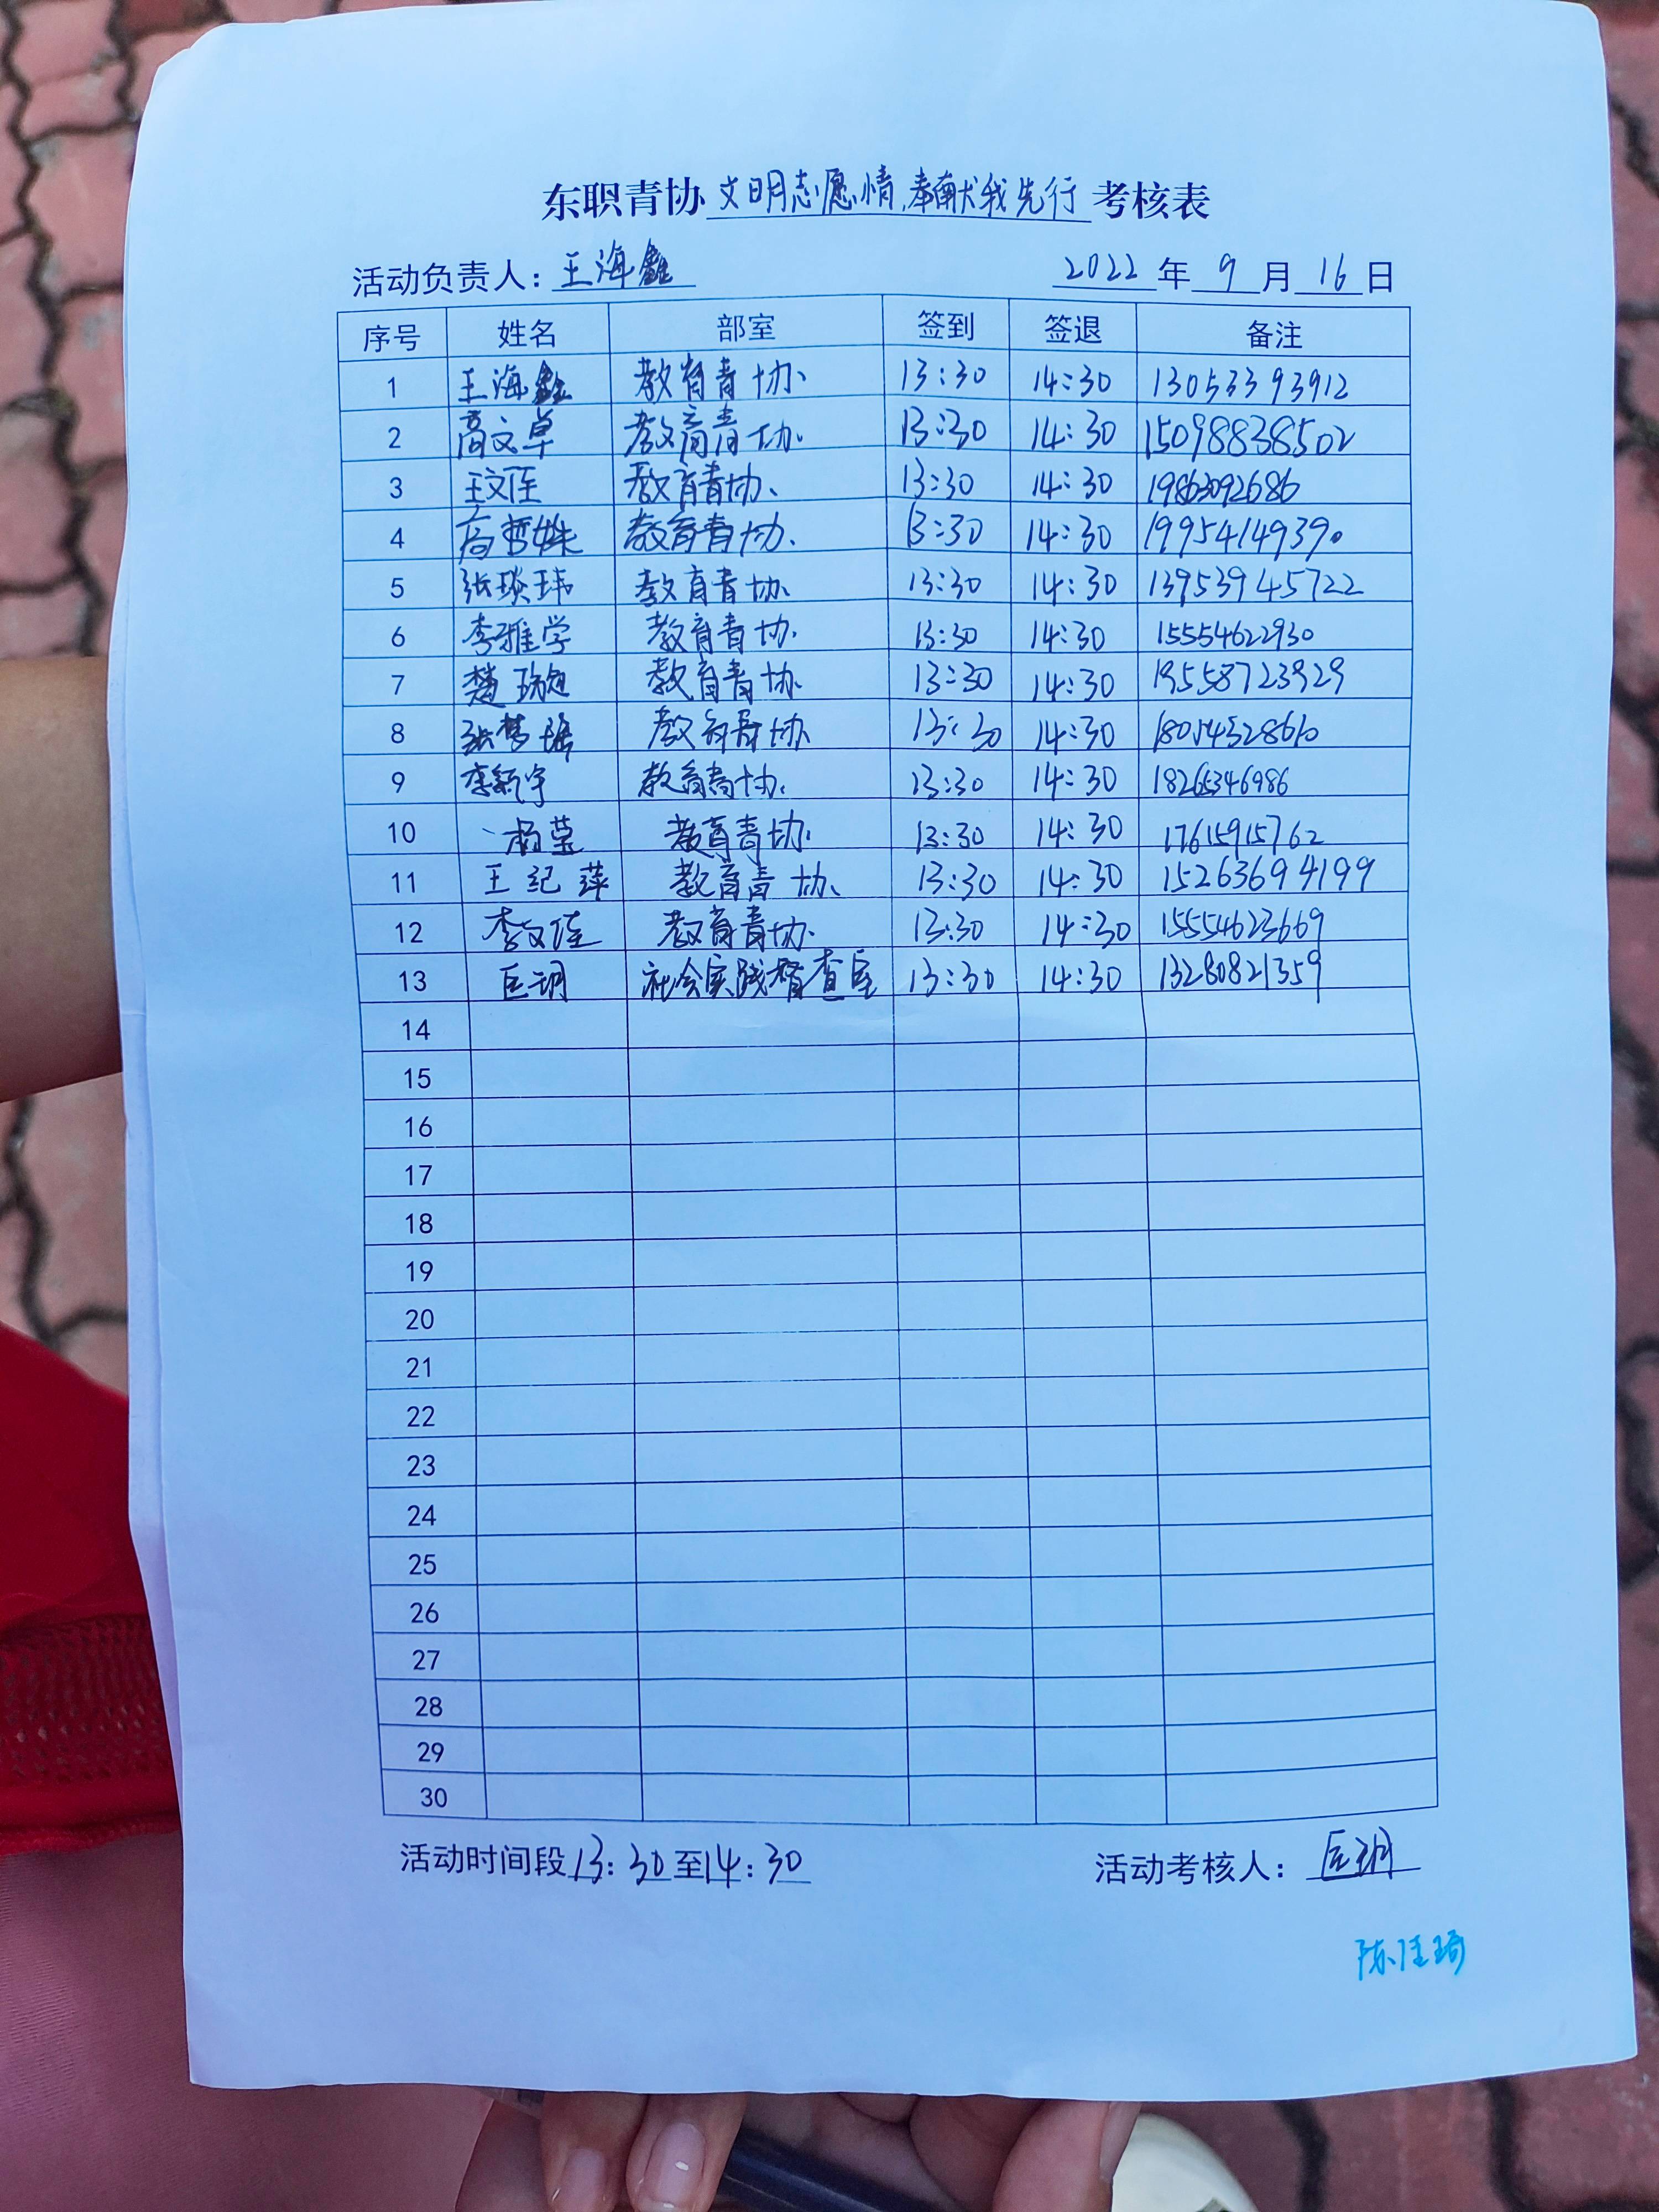 东职青协 文明志愿情,奉献我先行 考核表
活动负责人: 王海鑫 2022 年 9 月 16 日
序号 姓名 部室 签到 签退 备注
1 王海鑫 教育青协 13:30 14:30 13053393912
2 高文卓 教育青协 13:30 14:30 15098838502
3 王文佳 教育青协 13:30 14:30 19863092686
4 高哲姝 教育青协 13:30 14:30 19954149390
5 张琰玮 教育青协 13:30 14:30 13953945722
6 李雅学 教育青协 13:30 14:30 15554622930
7 楚璇 教育青协 13:30 14:30 19558723929
8 张梦瑶 教育青协 13:30 14:30 18054328610
9 李新宇 教育青协 13:30 14:30 18265346986
10 杨莹 教育青协 13:30 14:30 17615915762
11 王纪萍 教育青协 13:30 14:30 15263694199
12 李文佳 教育青协 13:30 14:30 15554623669
13 巨玥 社会实践督查室 13:30 14:30 13280821359
14
15
16
17
18
19
20
21
22
23
24
25
26
27
28
29
30
活动时间段 13:30 至 14:30 活动考核人: 巨玥
陈佳琦